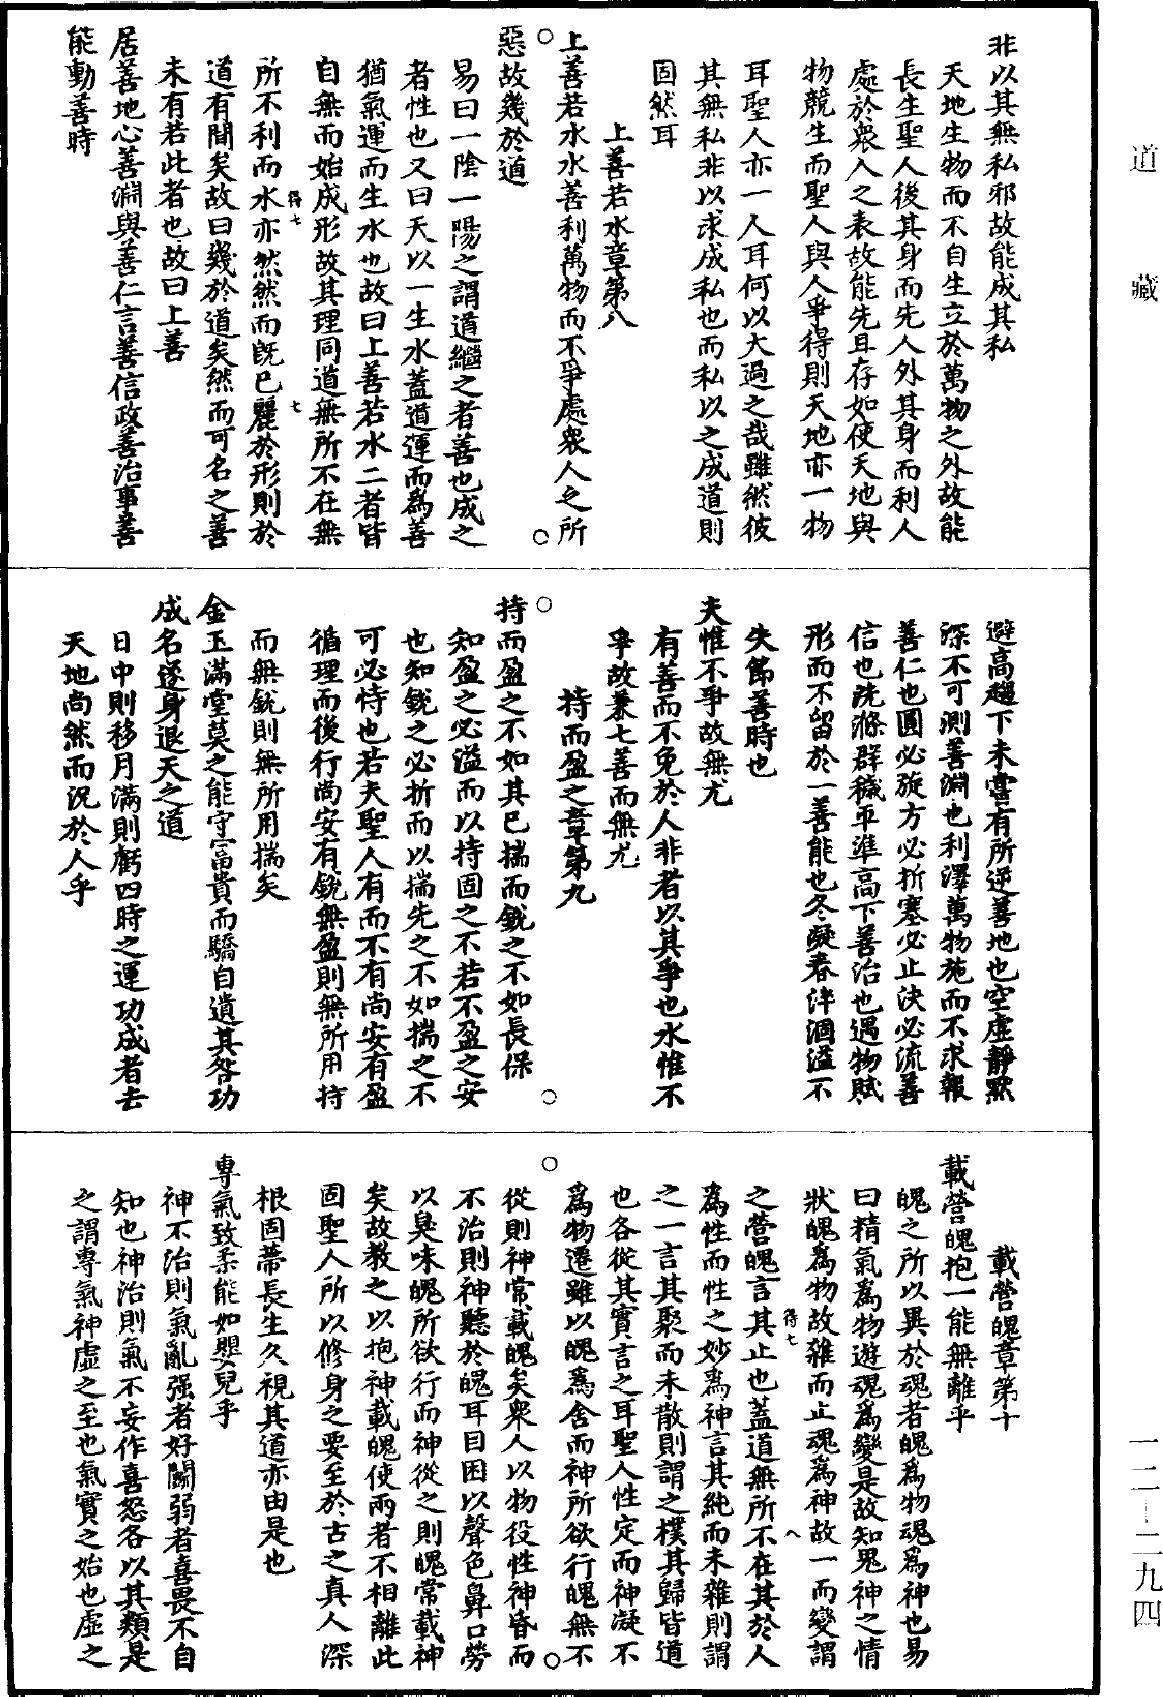 道藏
非以其無私邪故能成其私
天地生物而不自生立於萬物之外故能
長生聖人後其身而先人外其身而利人
處於衆人之表故能先且存如使天地與
物競生而聖人與人爭得則天地亦一物
耳聖人亦一人耳何以大過之哉雖然彼
其無私非以求成私也而私以之成道則
固然耳
上善若水章第八
上善若水水善利萬物而不爭處衆人之所
惡故幾於道
易曰一陰一陽之謂道繼之者善也成之
者性也又曰天以一生水蓋道運而爲善
猶氣運而生水也故曰上善若水二者皆
自無而始成形故其理同道無所不在無
所不利而水亦然然而既已麗於形則於
得七
七
道有間矣故曰幾於道矣然而可名之善
未有若此者也故曰上善
居善地心善淵與善仁言善信政善治事善
能動善時
避高趨下未嘗有所逆善地也空虛靜默
深不可測善淵也利澤萬物施而不求報
善仁也圓必旋方必折塞必止決必流善
信也洗滌群穢平準高下善治也遇物賦
形而不留於一善能也冬凝春泮涸溢不
失節善時也
夫惟不爭故無尤
有善而不免於人非者以其爭也水惟不
爭故兼七善而無尤
持而盈之章第九
持而盈之不如其已揣而銳之不如長保
知盈之必溢而以持固之不若不盈之安
也知銳之必折而以揣先之不如揣之不
可必恃也若夫聖人有而不有尚安有盈
循理而後行尚安有銳無盈則無所用持
而無銳則無所用揣矣
金玉滿堂莫之能守富貴而驕自遺其咎功
成名遂身退天之道
日中則移月滿則虧四時之運功成者去
天地尚然而況於人乎
載營魄章第十
載營魄抱一能無離乎
魄之所以異於魂者魄爲物魂爲神也易
曰精氣爲物遊魂爲變是故知鬼神之情
狀魄爲物故雜而止魂爲神故一而變謂
得七
八
之營魄言其止也蓋道無所不在其於人
爲性而性之妙爲神言其純而未雜則謂
之一言其聚而未散則謂之樸其歸皆道
也各從其實言之耳聖人性定而神凝不
爲物遷雖以魄爲舍而神所欲行魄無不
從則神常載魄矣衆人以物役性神昏而
不治則神聽於魄耳目困以聲色鼻口勞
以臭味魄所欲行而神從之則魄常載神
矣故教之以抱神載魄使兩者不相離此
固聖人所以修身之要至於古之真人深
根固蒂長生久視其道亦由是也
專氣致柔能如嬰兒乎
神不治則氣亂强者好鬭弱者喜畏不自
知也神治則氣不妄作喜怒各以其類是
之謂專氣神虛之至也氣實之始也虛之
一二—二九四